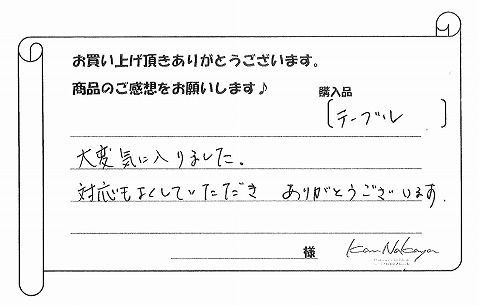 お買い上げ頂きありがとうございます。
商品のご感想をお願いします♪
購入品
[テーブル]
大変気に入りました。
対応もよくしていただき ありがとうございます.
様
Kan Nakaya